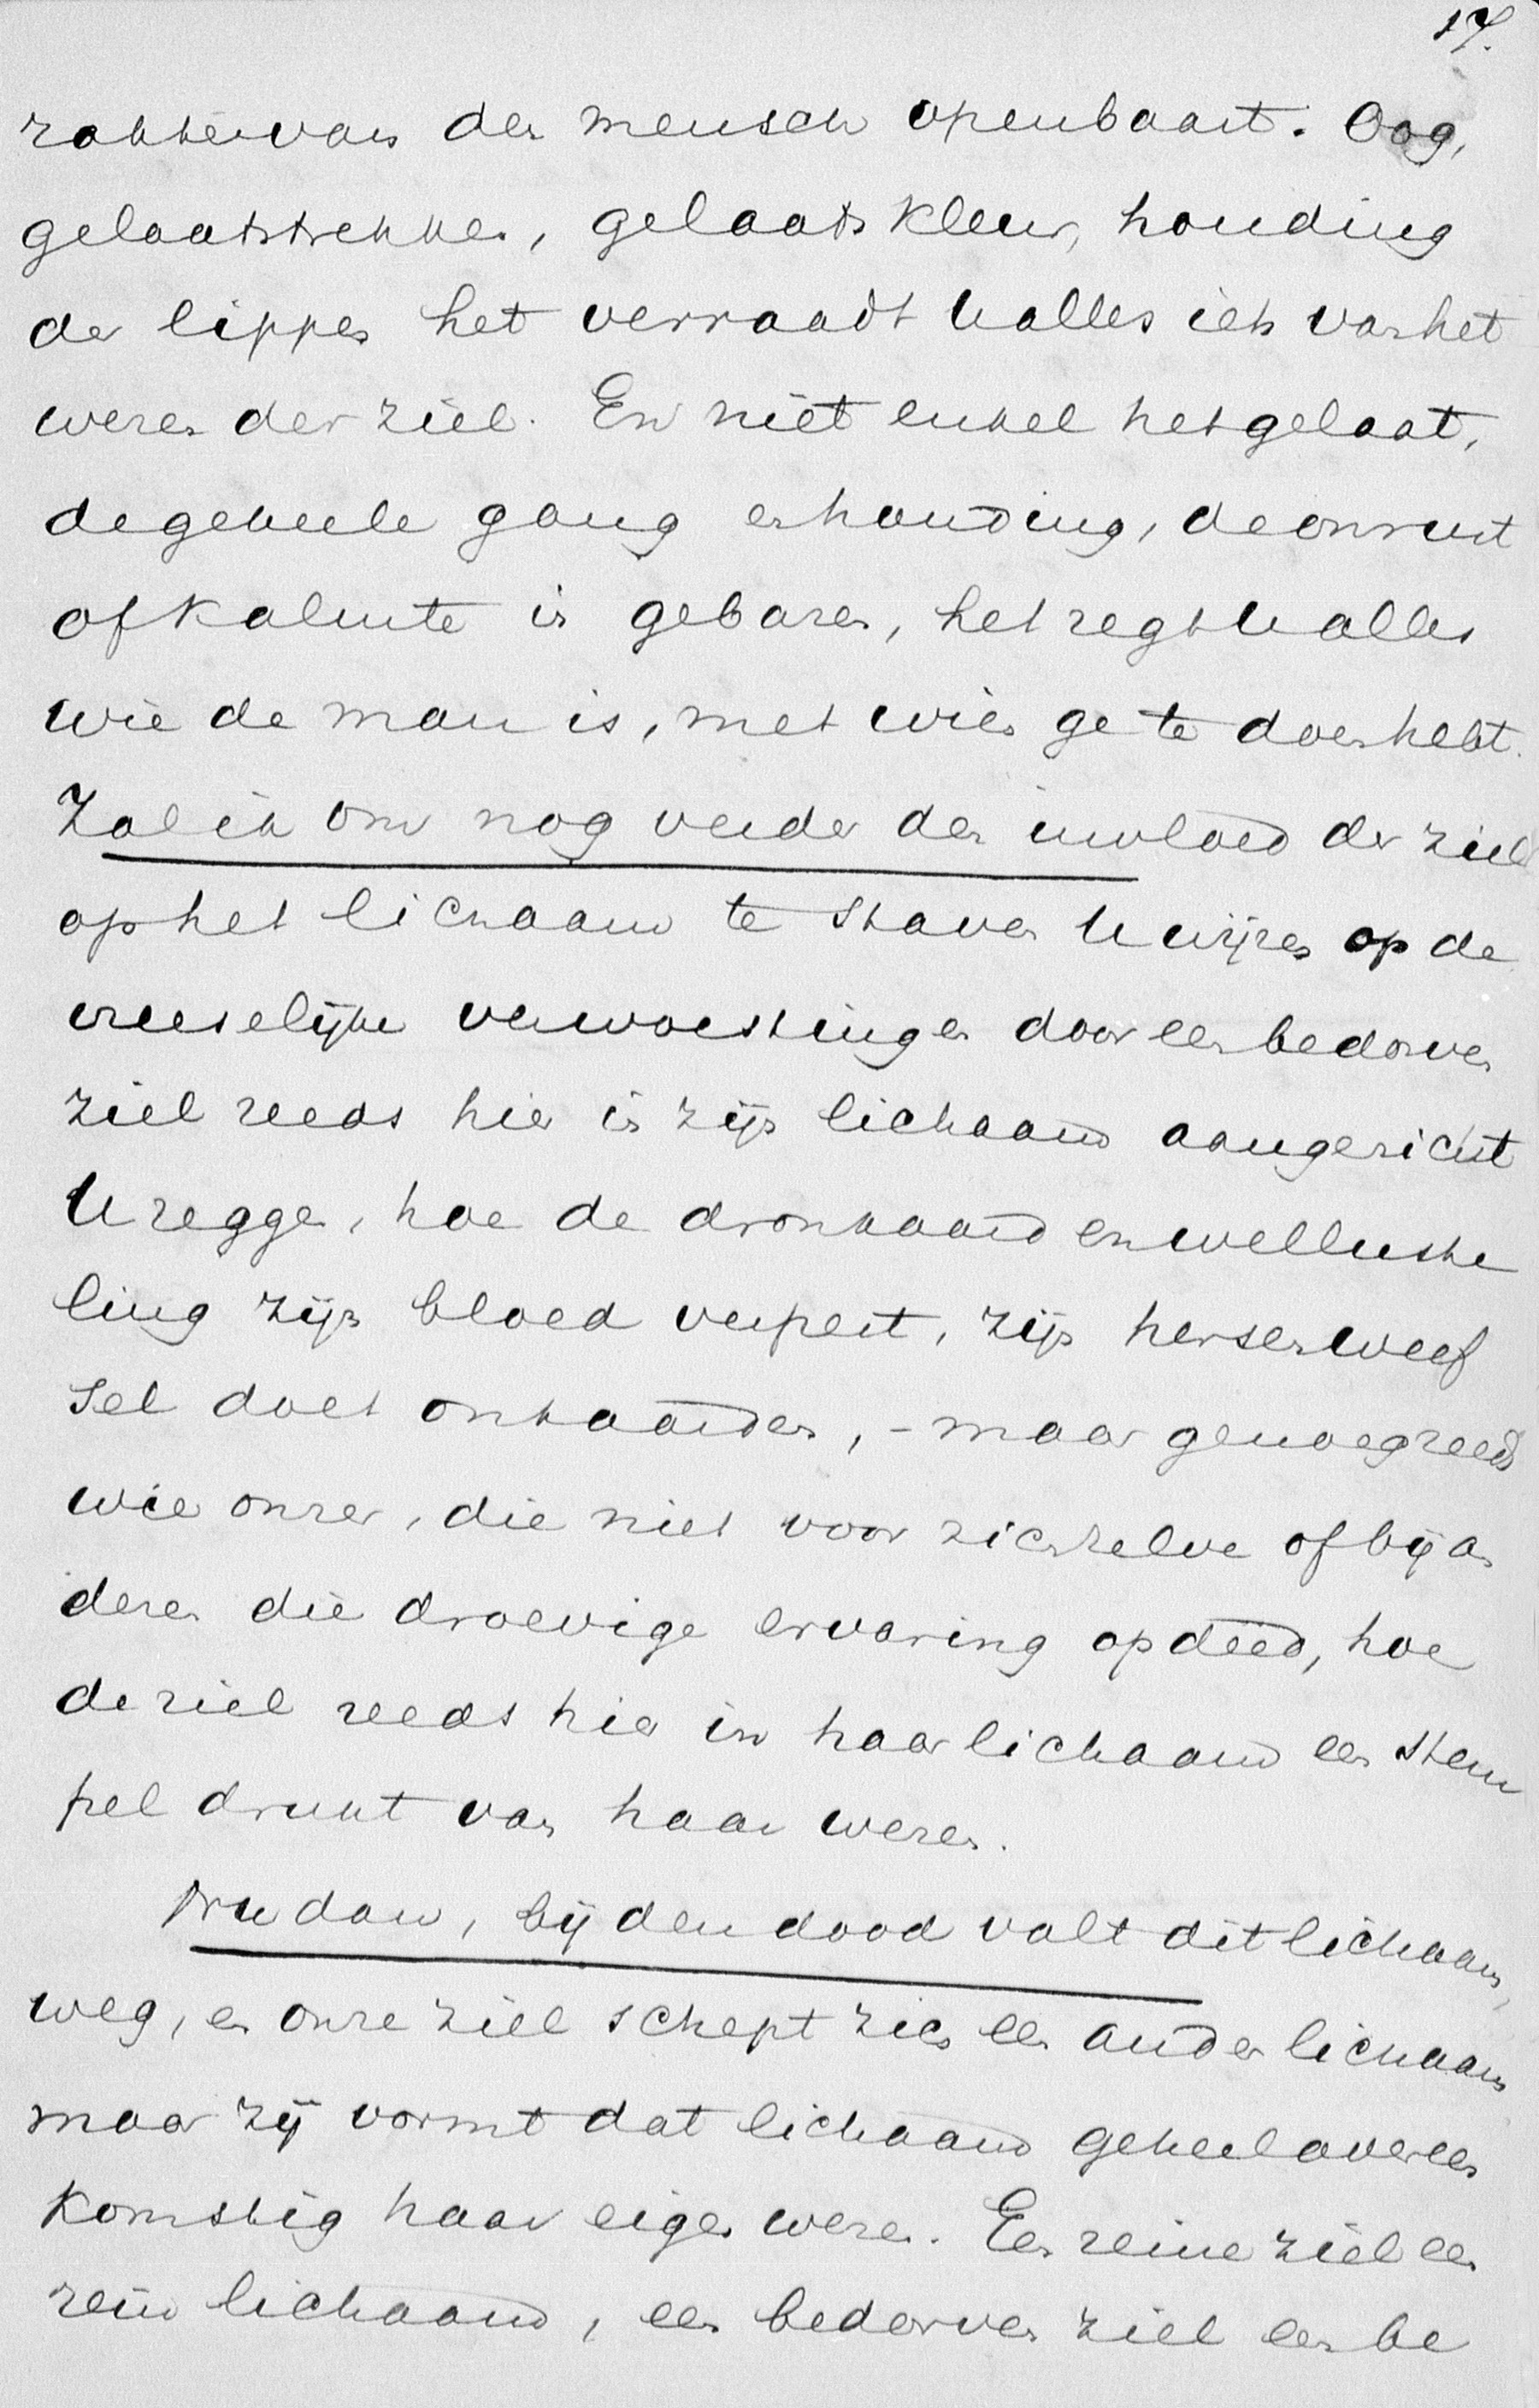 17.
rakker van den mensch openbaart. Oog,
gelaatstrekken, gelaatskleur, houding
der lippen het verraadt U alles iets van het
wezen der ziel. En niet enkel het gelaat,
de geheele gang en houding, de onrust
of kalmte in gebaren, het zegt U alles
wie de man is, met wien ge te doen hebt.
Zal ik om nog verder den invloed der ziel
op het lichaam te staven U wijzen op de
vreeselijke verwoestingen door een bedorven
ziel reeds hier in zijn lichaam aangericht
U zegge, hoe de dronkaard en welluste
ling zijn bloed verpest, zijn hersenweef
sel doet ontaarden, - maar genoeg reeds
wie onzer, die niet voor zichzelve of bij an
deren die droevige ervaring opdeed, hoe
de ziel reeds hier in haar lichaam een stem
pel drukt van haar wezen.
Nu dan, bij den dood valt dit lichaam,
weg, en onze ziel schept zich een ander lichaam
maar zij vormt dat lichaam geheel overeen
komstig haar eigen wezen. Een reine ziel een
rein lichaam, een bedorven ziel een be